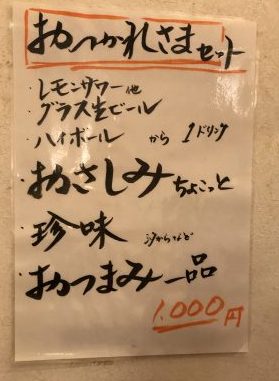 おつかれさまセット
・レモンサワー他
・グラス生ビール
・ハイボール から 1ドリンク
・おさしみちょこっと
・珍味
・おつまみ一品
1.000円